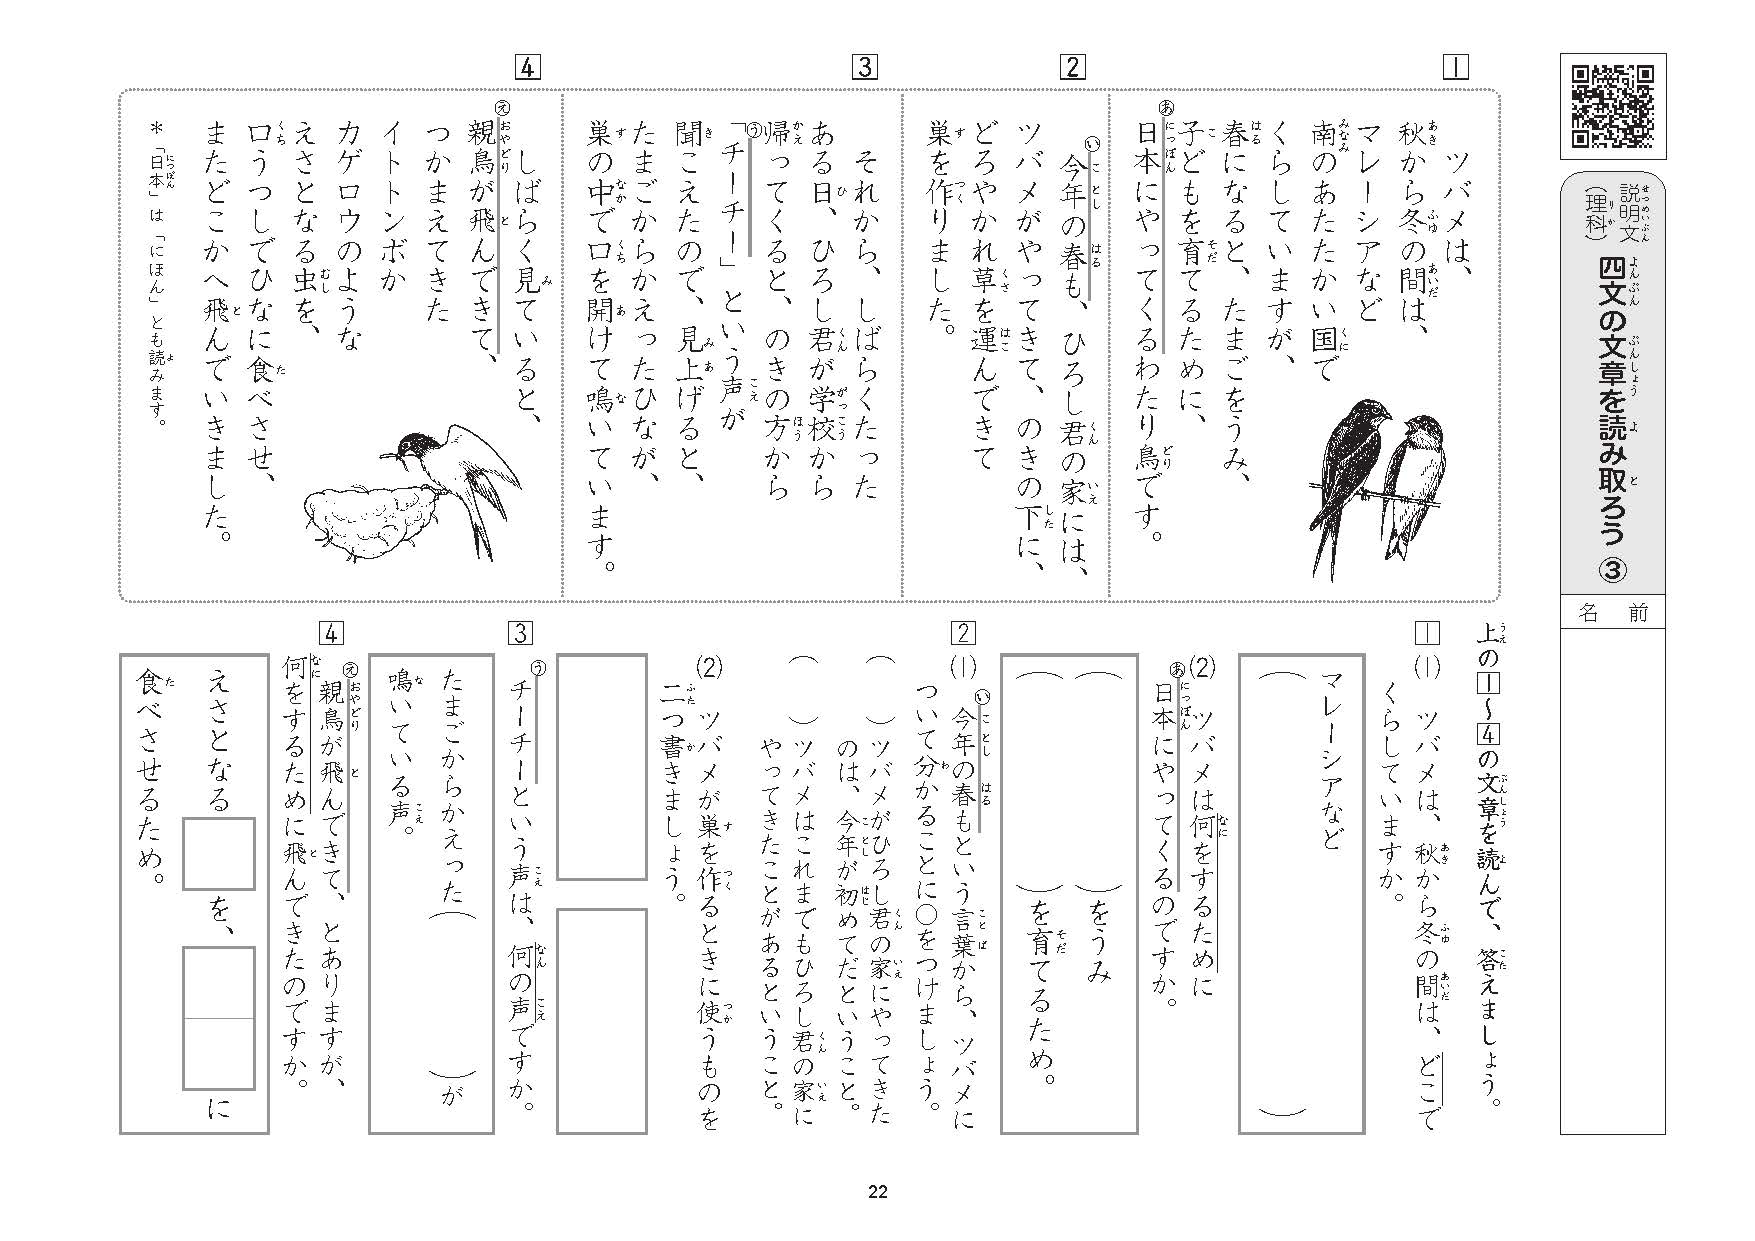 説明文
（理科）
四文の文章を読み取ろう ③
名前
1
ツバメは、
秋から冬の間は、
マレーシアなど
南のあたたかい国で
くらしていますが、
春になると、たまごをうみ、
子どもを育てるために、
あ日本にやってくるわたり鳥です。
2
い今年の春も、ひろし君の家には、
ツバメがやってきて、のきの下に、
どろやかれ草を運んできて
巣を作りました。
3
それから、しばらくたった
ある日、ひろし君が学校から
帰ってくると、のきの方から
う「チーチー」という声が
聞こえたので、見上げると、
たまごからかえったひなが、
巣の中で口を開けて鳴いています。
4
しばらく見ていると、
え親鳥が飛んできて、
つかまえてきた
イトトンボか
カゲロウのような
えさとなる虫を、
口うつしでひなに食べさせ、
またどこかへ飛んでいきました。
＊「日本」は「にほん」とも読みます。
上の1～4の文章を読んで、答えましょう。
1
(1) ツバメは、秋から冬の間は、どこで
くらしていますか。
マレーシアなど
（　　　）
(2) ツバメは何をするために
あ日本にやってくるのですか。
（　　　）をうみ
（　　　）を育てるため。
2
(1) い今年の春もという言葉から、ツバメに
ついて分かることに○をつけましょう。
（　）ツバメがひろし君の家にやってきた
のは、今年が初めてだということ。
（　）ツバメはこれまでもひろし君の家に
やってきたことがあるということ。
(2) ツバメが巣を作るときに使うものを
二つ書きましょう。
3
うチーチーという声は、何の声ですか。
たまごからかえった（　　　）が
鳴いている声。
4
え親鳥が飛んできて、とありますが、
何をするために飛んできたのですか。
えさとなる□を、□□に
食べさせるため。
22